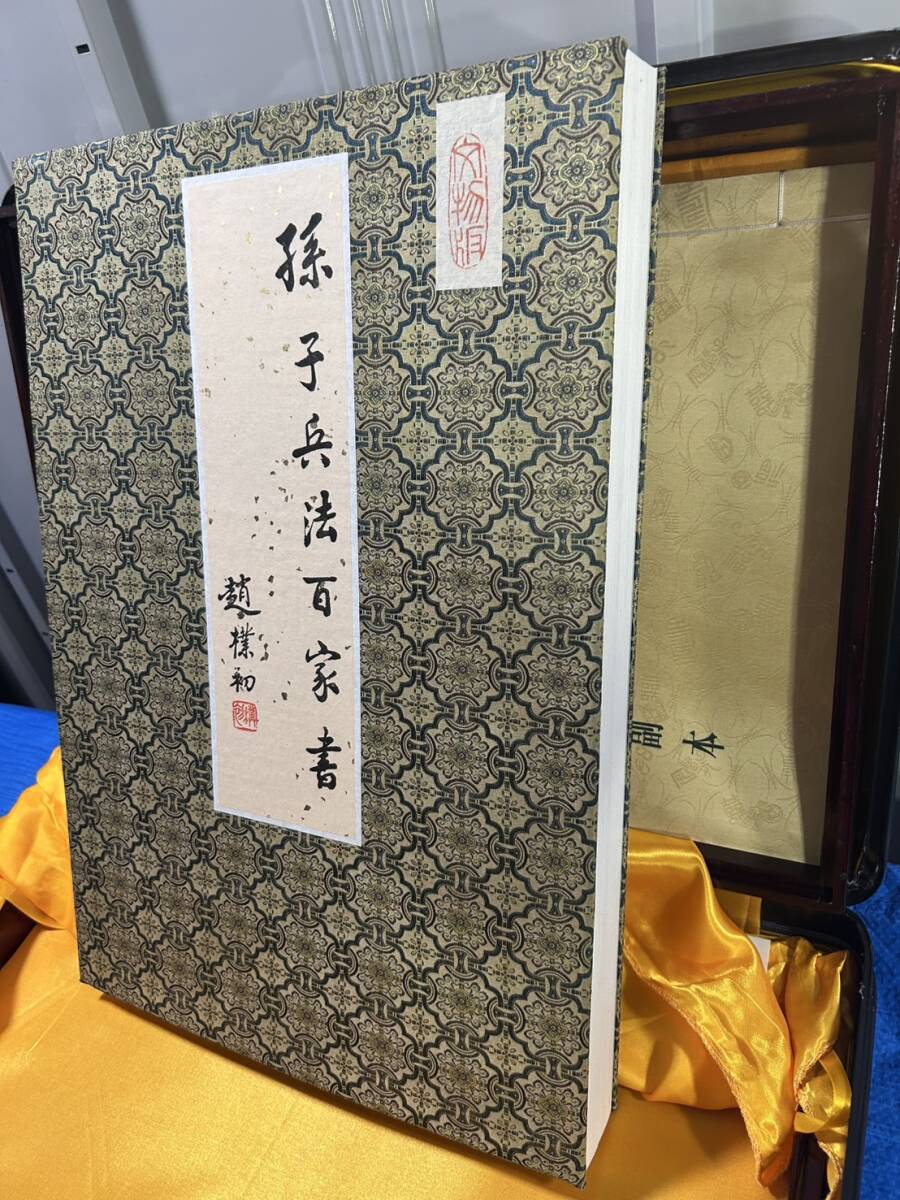 文物版
孫子兵法百家書
趙樸初
副本